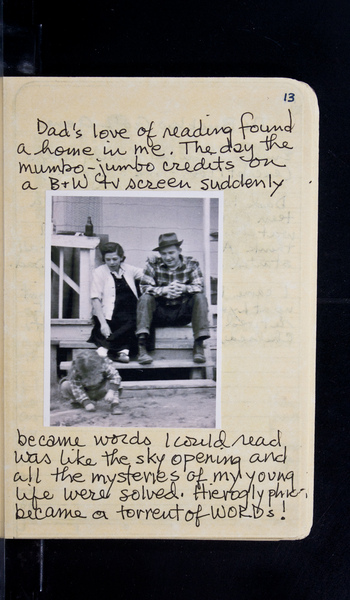 13
Dad's love of reading found
a home in me. The day the
mumbo-jumbo credits on
a B+W TV screen suddenly
became words I could read,
was like the sky opening and
all the mysteries of my young
life were solved. Hieroglyphics
became a torrent of WORDS!